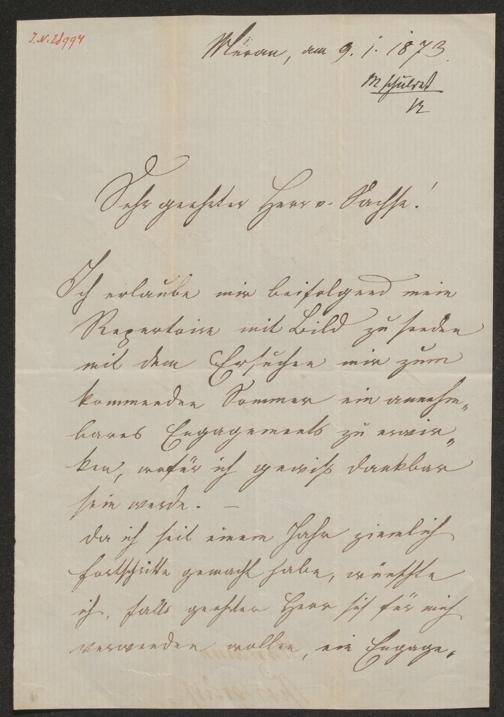 I.N. 21994
Meran, am 9. 1. 1873.
Sehr geehrter Herr v. Sachse!
Ich erlaube mir beifolgend mein
Repertoire mit Bild zu senden
mit dem Ersuchen mir zum
kommenden Sommer ein annehm„
bares Engagements zu erwir„
ken, wofür ich gewiß dankbar
sein werde. —
Da ich seit einem Jahr ziemlich
Fortschritte gemacht habe, wünschte
ich, falls geehrter Herr sich für mich
verwenden wollen, ein Engage„